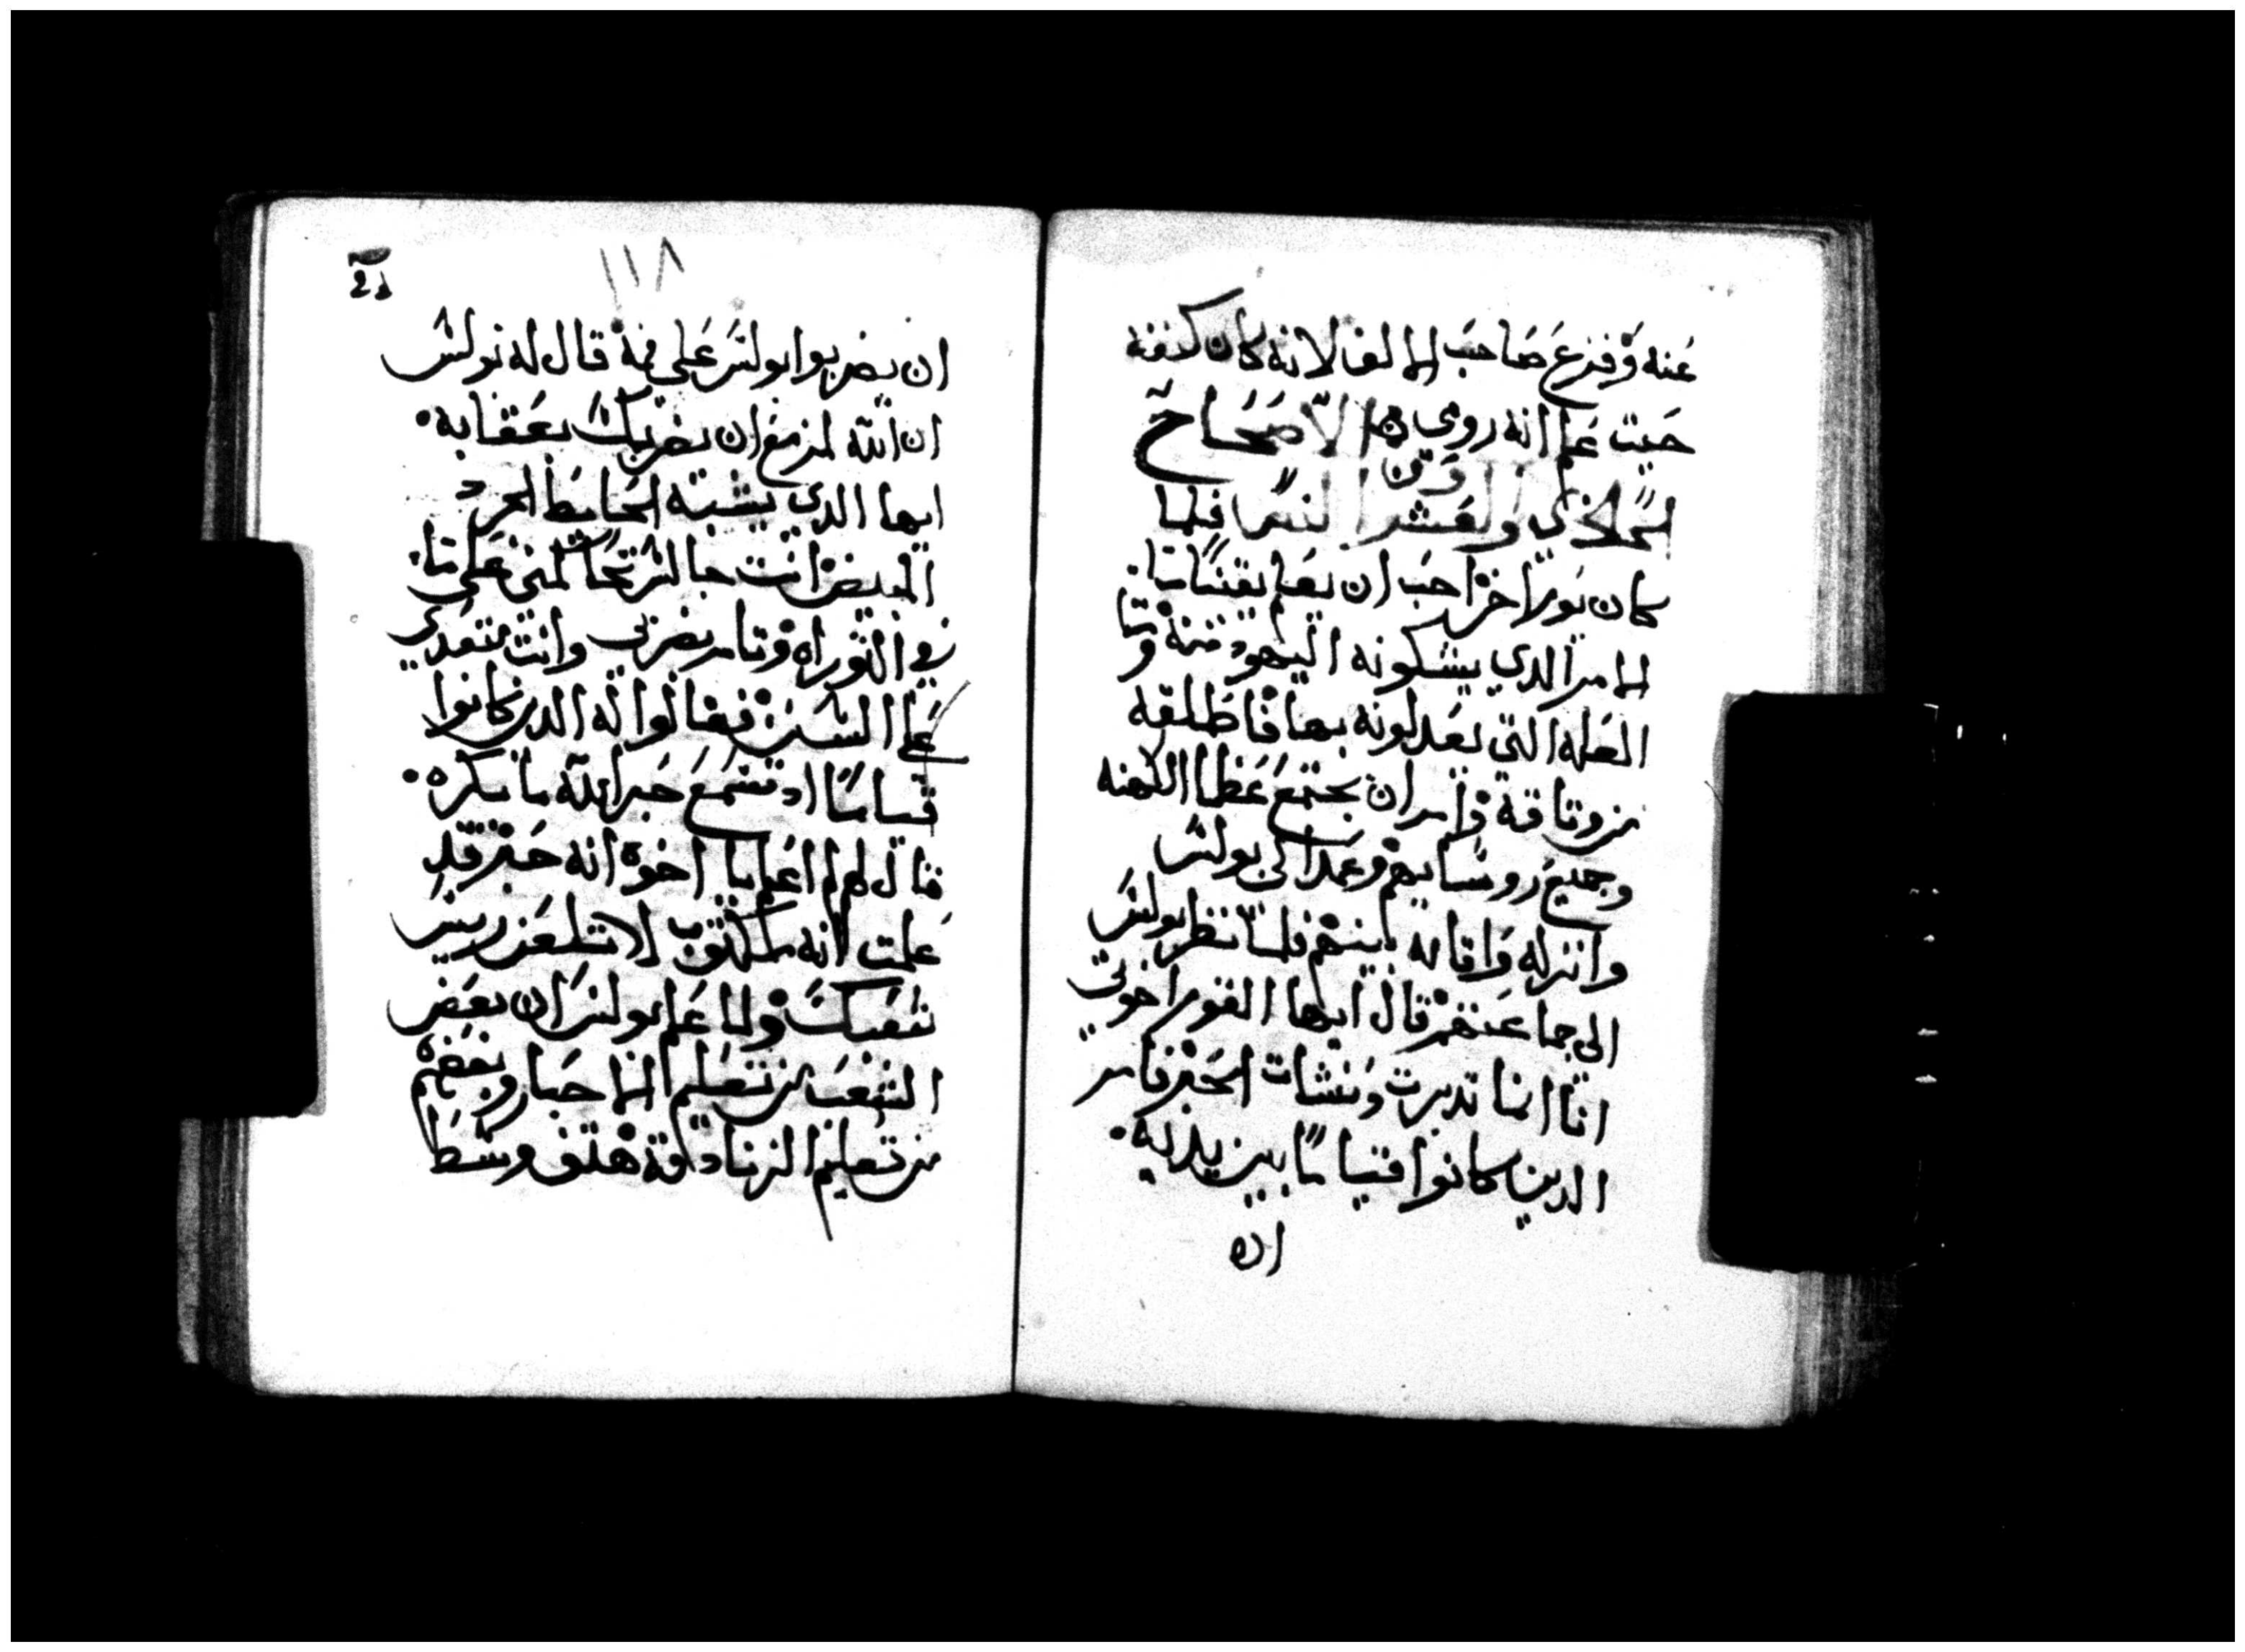 عنه وفزع صاحب الما لف لانه كان كتفه
حيت علم انه رومي الاصحاح
الحادي والعشر
كان يوم اخر احب ان يعلم يقينا ما
الامر الدي يشكونه اليهود منه وما
العله التي يعدلونه بها فاطلقه
من وتاقة وامر ان يجتمع عظما الكهنه
وجميع روسايهم وعمد الى بولس
وانزله واقامه بينهم فلما نظر بولس
الى جماعتهم قال ايها القوم اخوتي
انا انما تدبرت ونشات الخبر فامر
الدين كانوا قياما بين يديه.
ان
١١٨
ان يضربوا بولس على فمه قال له بولس
ان الله لمزمع ان يضربك بعقابه.
ايها الدي يشبه الحايط المجرد
المبيض انت جالس تحاكمني على ما
في التوراه وتامر بضربي وانت متعدي
على السنن فقالوا له الدين كانوا
قياما اد تشتم حبر الله ما تكره.
قال لهم لم اعلم يا اخوة انه حبر قد
علمت انه مكتوب لا تلعن رييس
شعبك ولما علم بولس ان بعض
الشعب من تعليم احبار وبعضهم
من تعليم الزنادقة هتف وسط